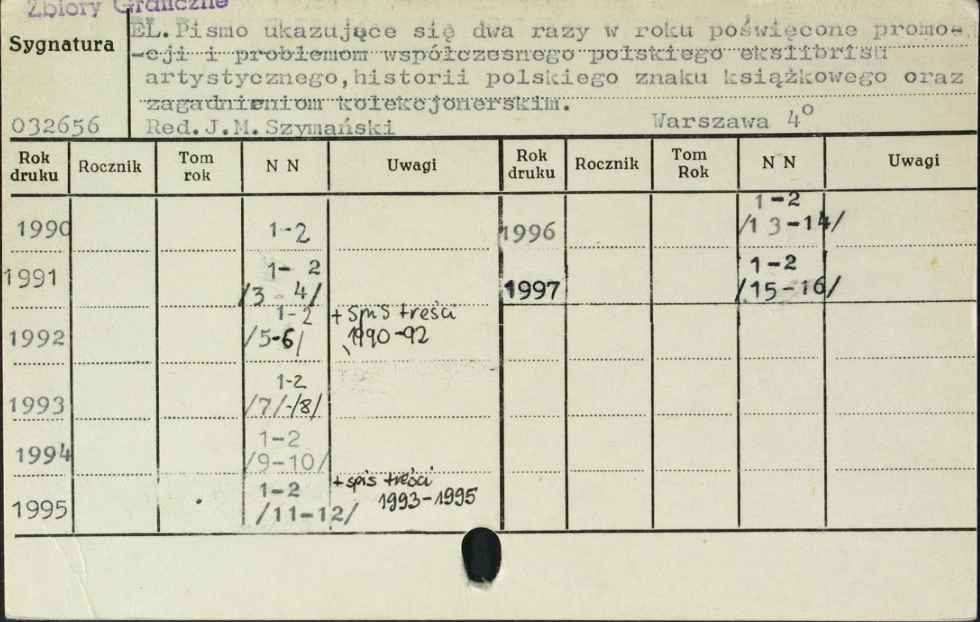 Zbiory Graficzne
Sygnatura
032656
EL.Pismo ukazujące się dwa razy w roku poświęcone promo-
-cji i problemom współczesnego polskiego ekslibrisu
artystycznego,historii polskiego znaku książkowego oraz
zagadnieniom kolekcjonerskim.
Red.J.M.Szymański Warszawa 4°
Rok druku Rocznik Tom rok N N Uwagi Rok druku Rocznik Tom Rok N N Uwagi
1990 1-2 1996 1-2 /13-14/
1991 1-2 /3-4/ 1997 1-2 /15-16/
1992 1-2 /5-6/ + spis treści 1990-92
1993 1-2 /7/-/8/
1994 1-2 /9-10/
1995 1-2 /11-12/ + spis treści 1993-1995